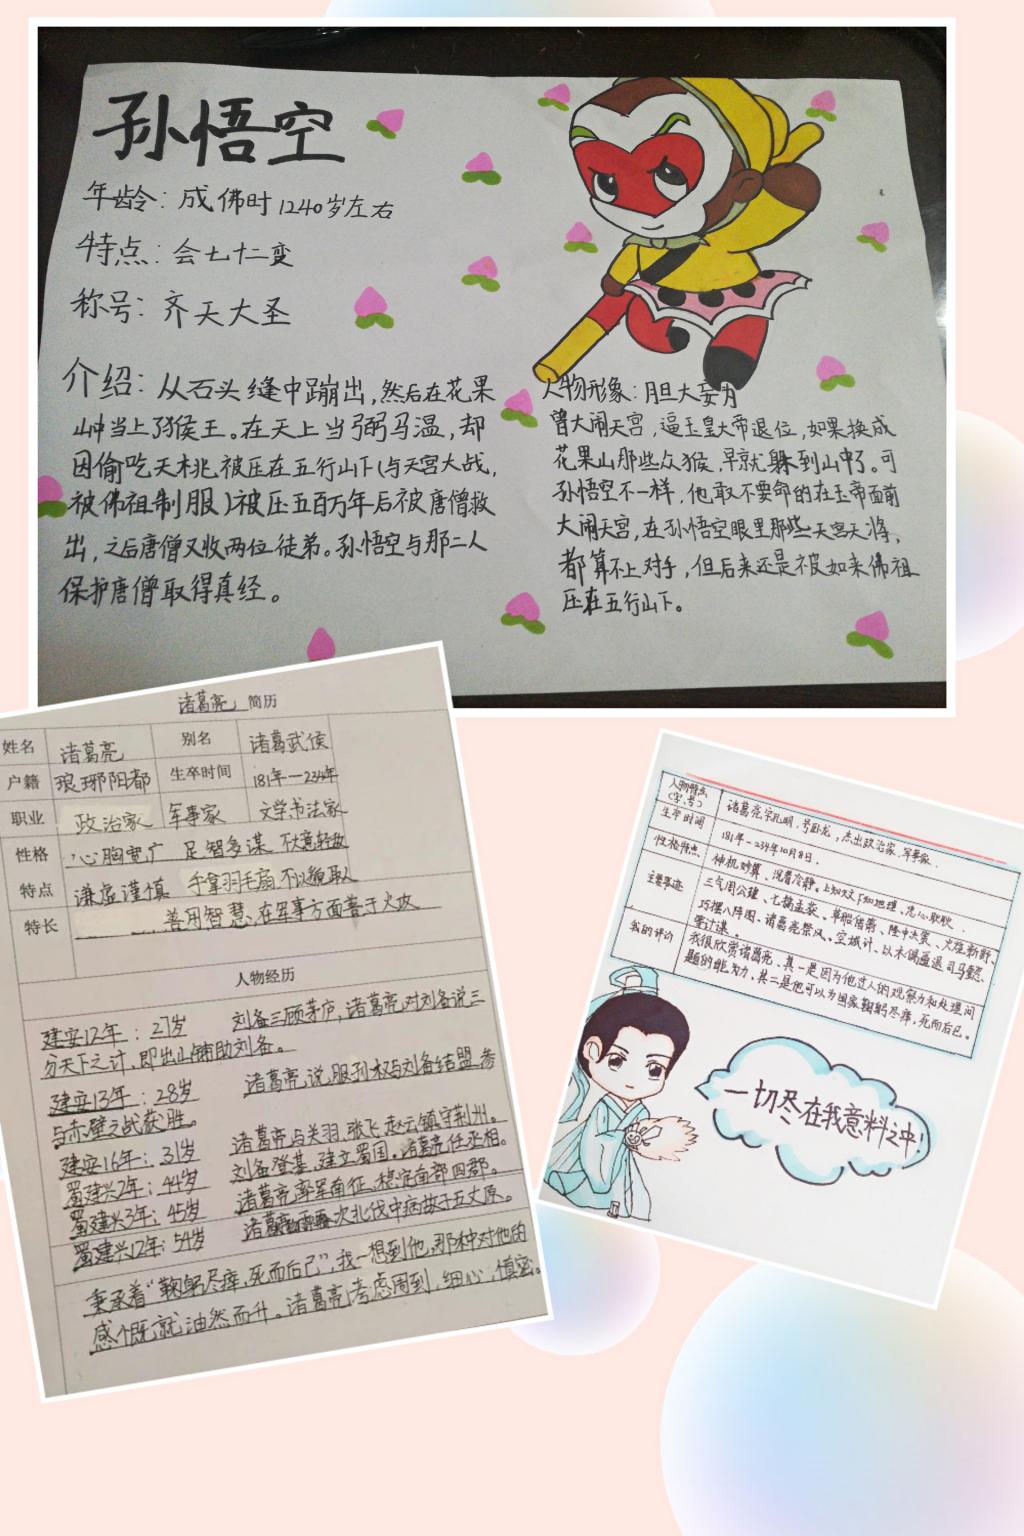 孙悟空
年龄：成佛时1240岁左右
特点：会七十二变
称号：齐天大圣
介绍：从石头缝中蹦出，然后在花果
山中当上了猴王。在天上当弼马温，却
因偷吃天桃，被压在五行山下（与天宫大战，
被佛祖制服）被压五百万年后被唐僧救
出，之后唐僧又收两位徒弟。孙悟空与那二人
保护唐僧取得真经。
人物形象：胆大妄为
曾大闹天宫，逼玉皇大帝退位，如果换成
花果山那些众猴，早就躲到山中了。可
孙悟空不一样，他敢不要命的在玉帝面前
大闹天宫，在孙悟空眼里那些天宫天将，
都算不上对手，但后来还是被如来佛祖
压在五行山下。
诸葛亮 简历
姓名 诸葛亮 别名 诸葛武侯
户籍 琅琊阳都 生卒时间 181年—234年
职业 政治家 军事家 文学书法家
性格 心胸宽广 足智多谋 不大意轻敌
特点 谦虚谨慎 手拿羽毛扇 不以貌取人
特长 善用智慧，在军事方面善于火攻
人物经历
建安12年：27岁 刘备三顾茅庐，诸葛亮对刘备说三
分天下之计，即出山辅助刘备。
建安13年：28岁 诸葛亮说服孙权与刘备结盟，参
与赤壁之战获胜。
建安16年：31岁 诸葛亮与关羽、张飞、赵云镇守荆州。
蜀建兴2年：44岁 刘备登基，建立蜀国。诸葛亮任丞相。
蜀建兴3年：45岁 诸葛亮率军南征，稳定南部四郡。
蜀建兴12年：54岁 诸葛亮 次北伐中病故于五丈原。
秉承着“鞠躬尽瘁，死而后已”，我一想到他，那种对他的
感慨就油然而升。诸葛亮考虑周到，细心，慎密。
人物特点（字、号） 诸葛亮，字孔明，号卧龙，杰出政治家、军事家
生卒时间 181年—234年10月8日。
性格特点 神机妙算、沉着冷静。上知天文下知地理、忠心耿耿
主要事迹 三气周公瑾、七擒孟获、草船借箭、隆中决策、火烧新野、
巧摆八阵图、诸葛亮祭风、空城计、以木偶逼退司马懿、
等计谋。
我的评价 我很欣赏诸葛亮，其一是因为他过人的观察力和处理问
题的能力，其二是他可以为国家鞠躬尽瘁，死而后已。
一切尽在我意料之中